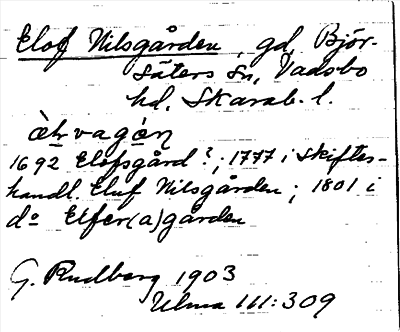 Elof Nilsgården, gd, Björ-
säters sn, Vadsbo
hd, Skarab. l.
1692 Elofsgård?; 1777 i skiftes-
handl. Eluf Nilsgården; 1801 i
do Elfer(a)gården
G. Rudberg 1903
Ulma 111:309